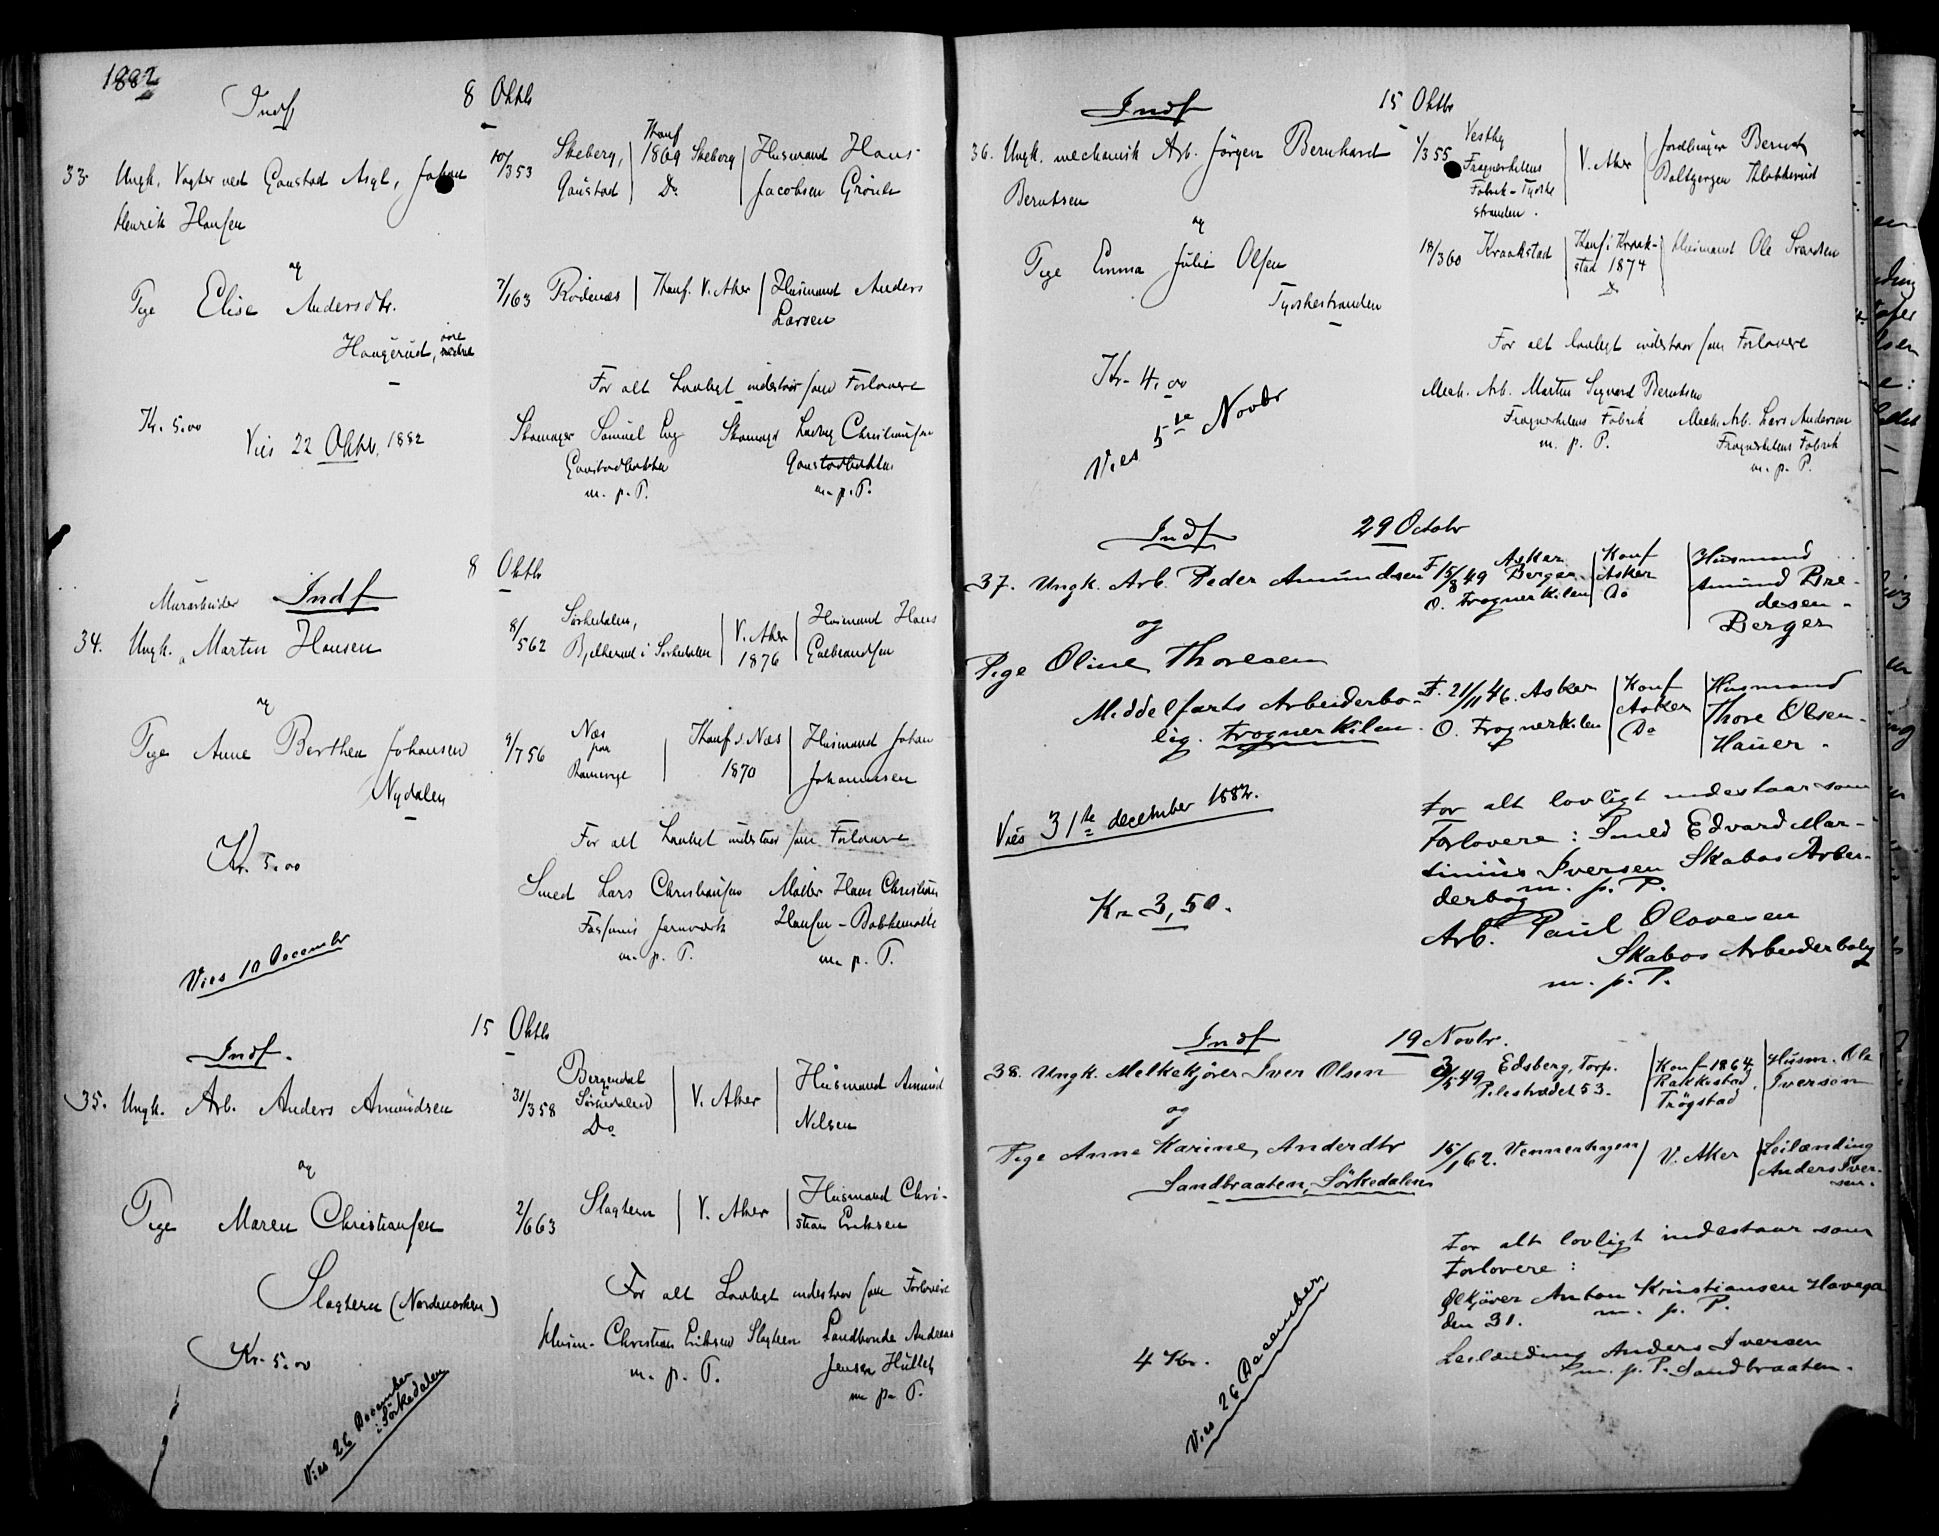 1882
Indf 8 Oktb
33. Ungk. Vagter ved Gaustad Asyl, Johan
Henrik Hansen
10/353 Skeberg, Gaustad | Konf 1869 Skeberg Do | Husmand Hans Jacobsen Grönli
og
Pige Elise Andersdtr.
Haugerud, övre nedre
7/163 Rödenæs | Konf. V. Aker | Husmand Anders Larsen
For alt Lovligt indestaar som Forlovere
Kr. 5.00
Vies 22 Oktbr. 1882
Skomager Samuel Eng Skomager Ludvig Christiansen
Gaustadbakken Gaustadbakken
m. p. P. m. p. P.
Indf 8 Oktb
Murarbeider
34. Ungk. Martin Hansen
8/562 Sörkedalen, i Sörkedalen | V. Aker 1876 | Husmand Hans Gulbrandsen
og
Pige Anne Berthea Johansen
Nydalen
9/756 Næs paa Romerige | Konf. i Næs 1870 | Husmand Johan Johannesen
Kr. 5.00
For alt Lovligt indestaar som Forlovere
Smed Lars Christiansen Maler Hans Christian
Jernværk Hansen -
m. p. P. m. p. P.
Vies 10 December
Indf. 15 Oktb
35. Ungk. Arb. Anders Amundsen
31/358 Bergendal Sörkedalen Do | V. Aker | Husmand Amund Nilsen
og
Pige Maren Christiansen
Slagtern (Nordmarken)
2/663 Slagtern | V. Aker | Husmand Christian Eriksen
For alt Lovligt indestaar som Forlovere
Husm. Christian Eriksen Slagtern Landhandl Andreas
m. p. P. Jensen
m. p. P.
Kr. 5.00
Vies 26 December
i Sörkedalen
Indf 15 Oktbr
36. Ungk. mechanisk Arb. Jörgen Bernhard
Berntsen
1/355 Vestby Frognerkilens Fabrik - Tyskestranden. | V. Aker | Jordbruger Bernt
og
Pige Emma Julie Olsen
Tyskestranden
18/360 Kraakstad | Konf. i Kraakstad 1874 Do | Husmand Ole Svendsen
For alt lovligt indestaar som Forlovere
Kr. 4.00
Vies 5te Novbr
Mech. Arb. Martin Sigvard Berntsen
Frognerkilens Fabrik Mech. Arb. Lars Andersen
m. p. P. Frognerkilens Fabrik
m. p. P.
Indf 29 Octobr
37. Ungk. Arb. Peder Amundsen
F 15/8 49 Asker Berger. O. Frognerkilen | Konf Asker Do | Husmand Amund Bredesen - Berger
og
Pige Oline Thoresen
Middelfarts Arbeiderbo-
lig. Frognerkilen.
F. 21/11 46. Asker O. Frognerkilen | Konf Asker Do | Husmand Thore Olsen - Hauer.
Vies 31te december 1882.
For alt lovligt indestaar som
Forlovere: Smed Edvard Mar-
tinius Iversen Skabos Arbei-
derbog
m. p. P.
Kr 3,50.
Arb. Paul Olavesen
Skabos Arbeiderbolig
m. p. P.
Indf 19 Novbr.
38. Ungk. Melkekjörer Iver Olsen
3/5 49 Edsberg, Torp. Pilestrædet 53. | Konf 1864 Rakkestad, Trögstad | Husm. Ole Iversen
og
Pige Anne Karine Andersdtr
Sandbraaten, Sörkedalen
15/162. Vennerhagen | V. Aker | Leilænding Anders Iversen.
For alt lovligt indestaar som
Forlovere:
Ölkjörer Anton Kristiansen Havega-
den 31. m. p. P.
4 Kr.
Leilænding Anders Iversen
m. p. P. Sandbraaten.
Vies 26 December